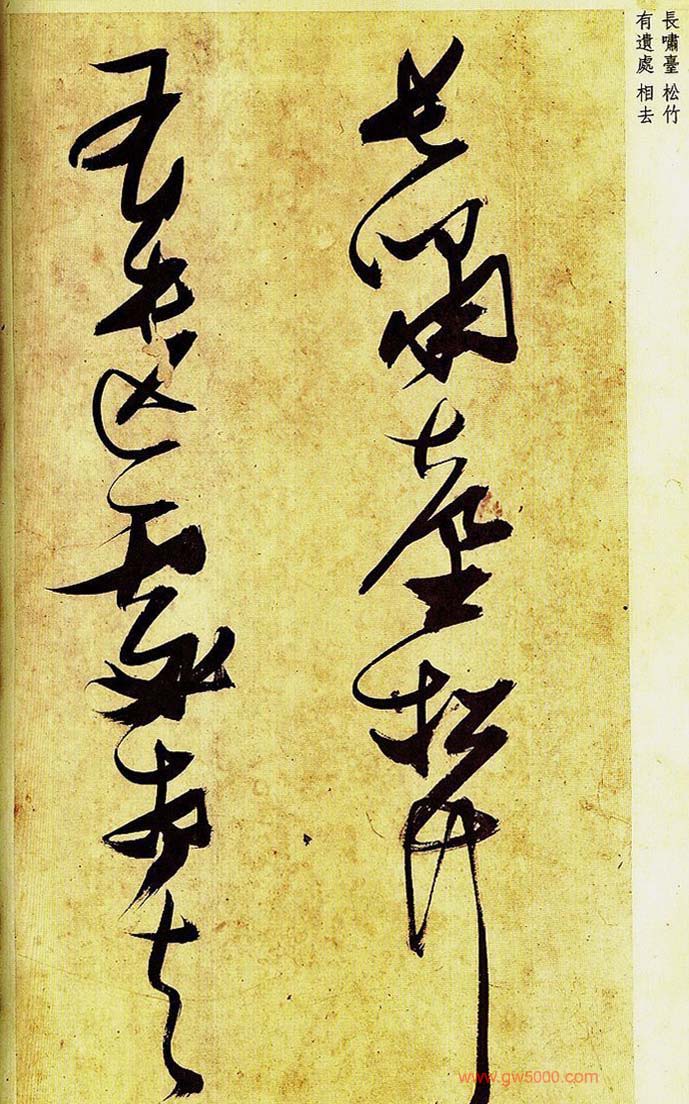 長嘯臺 松竹
有遺處 相去
長嘯臺松竹
有遺處相去
www.gw5000.com